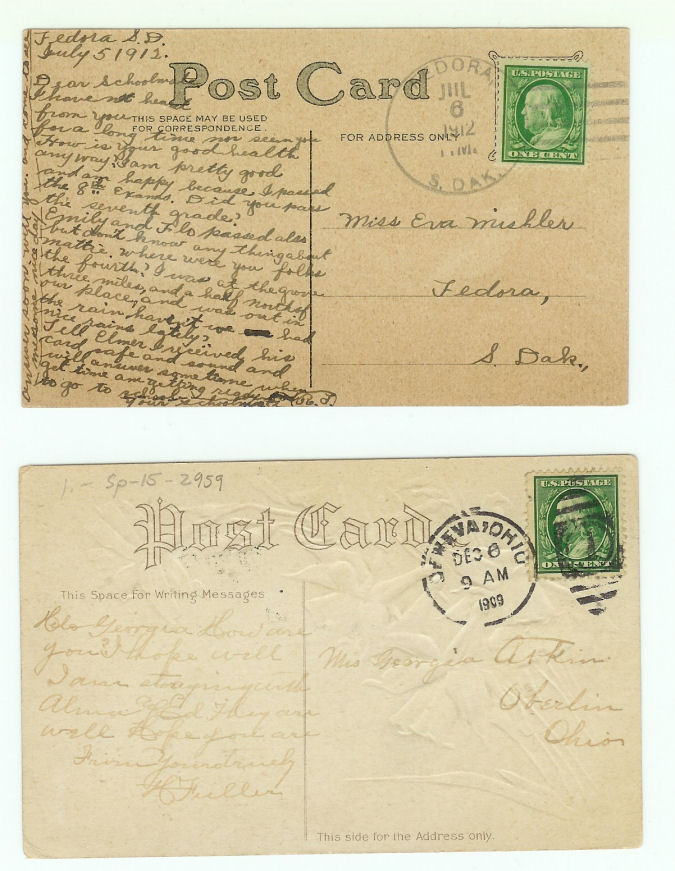 Fedora S D.
July 5 1912.
Dear Schoolmate
I have not heard
from you
for a long time nor seen you
How is your good health
anyway? I am pretty good
and am happy because I passed
the 8th Exams. Did you pass
the seventh grade?
Emily and Flo passed also
but don't know any thing about
mattie. where were you folks
the fourth? I was at the grove
three miles, and a half north of
our place, and was out in
the rain, haven't we had
nice rains lately?
Tell Elmer I received his
card safe and sound and
will answer some time when
get time am getting ready
to go to
Your Schoolmate
answer soon will you. and come to see
me some nice day
Post Card
THIS SPACE MAY BE USED
FOR CORRESPONDENCE.
FOR ADDRESS ONLY
FEDORA
JUL
6
1912
P.M.
S. DAK.
U.S. POSTAGE
ONE CENT
Miss Eva Mishler
Fedora,
S. Dak.,
1.- Sp-15-2959
Post Card
This Space for Writing Messages
GENEVA, OHIO
DEC 6
9 AM
1909
U.S. POSTAGE
1
ONE CENT
Helo Georgia How are
you? I hope well
I am staying with
Alma & Ed They are
well Hope you are
From Yours truly
H Fuller
Mis Georgia Atkin
Oberlin
Ohio
This side for the Address only.